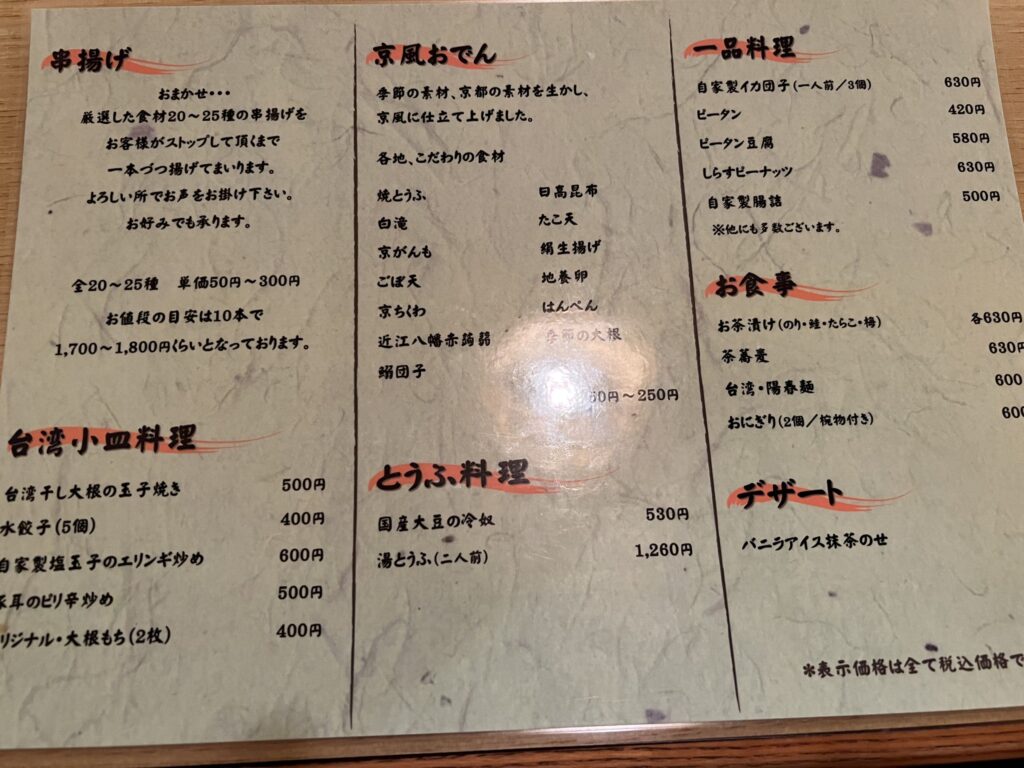 串揚げ
おまかせ・・・
厳選した食材20～25種の串揚げを
お客様がストップして頂くまで
一本づつ揚げてまいります。
よろしい所でお声をお掛け下さい。
お好みでも承ります。
全20～25種 単価50円～300円
お値段の目安は10本で
1,700～1,800円くらいとなっております。
台湾小皿料理
台湾干し大根の玉子焼き 500円
水餃子(5個) 400円
自家製塩玉子のエリンギ炒め 600円
豚耳のピリ辛炒め 500円
リジナル・大根もち(2枚) 400円
京風おでん
季節の素材、京都の素材を生かし、
京風に仕立て上げました。
各地、こだわりの食材
焼とうふ 日高昆布
白滝 たこ天
京がんも 絹生揚げ
ごぼ天 地養卵
京ちくわ はんぺん
近江八幡赤蒟蒻 季節の大根
鰯団子
50円～250円
とうふ料理
国産大豆の冷奴 530円
湯とうふ(二人前) 1,260円
一品料理
自家製イカ団子(一人前/3個) 630円
ピータン 420円
ピータン豆腐 580円
しらすピーナッツ 630円
自家製腸詰 500円
※他にも多数ございます。
お食事
お茶漬け(のり・鮭・たらこ・梅) 各630円
茶蕎麦 630円
台湾・陽春麺 600
おにぎり(2個/椀物付き) 600
デザート
バニラアイス抹茶のせ
＊表示価格は全て税込価格で